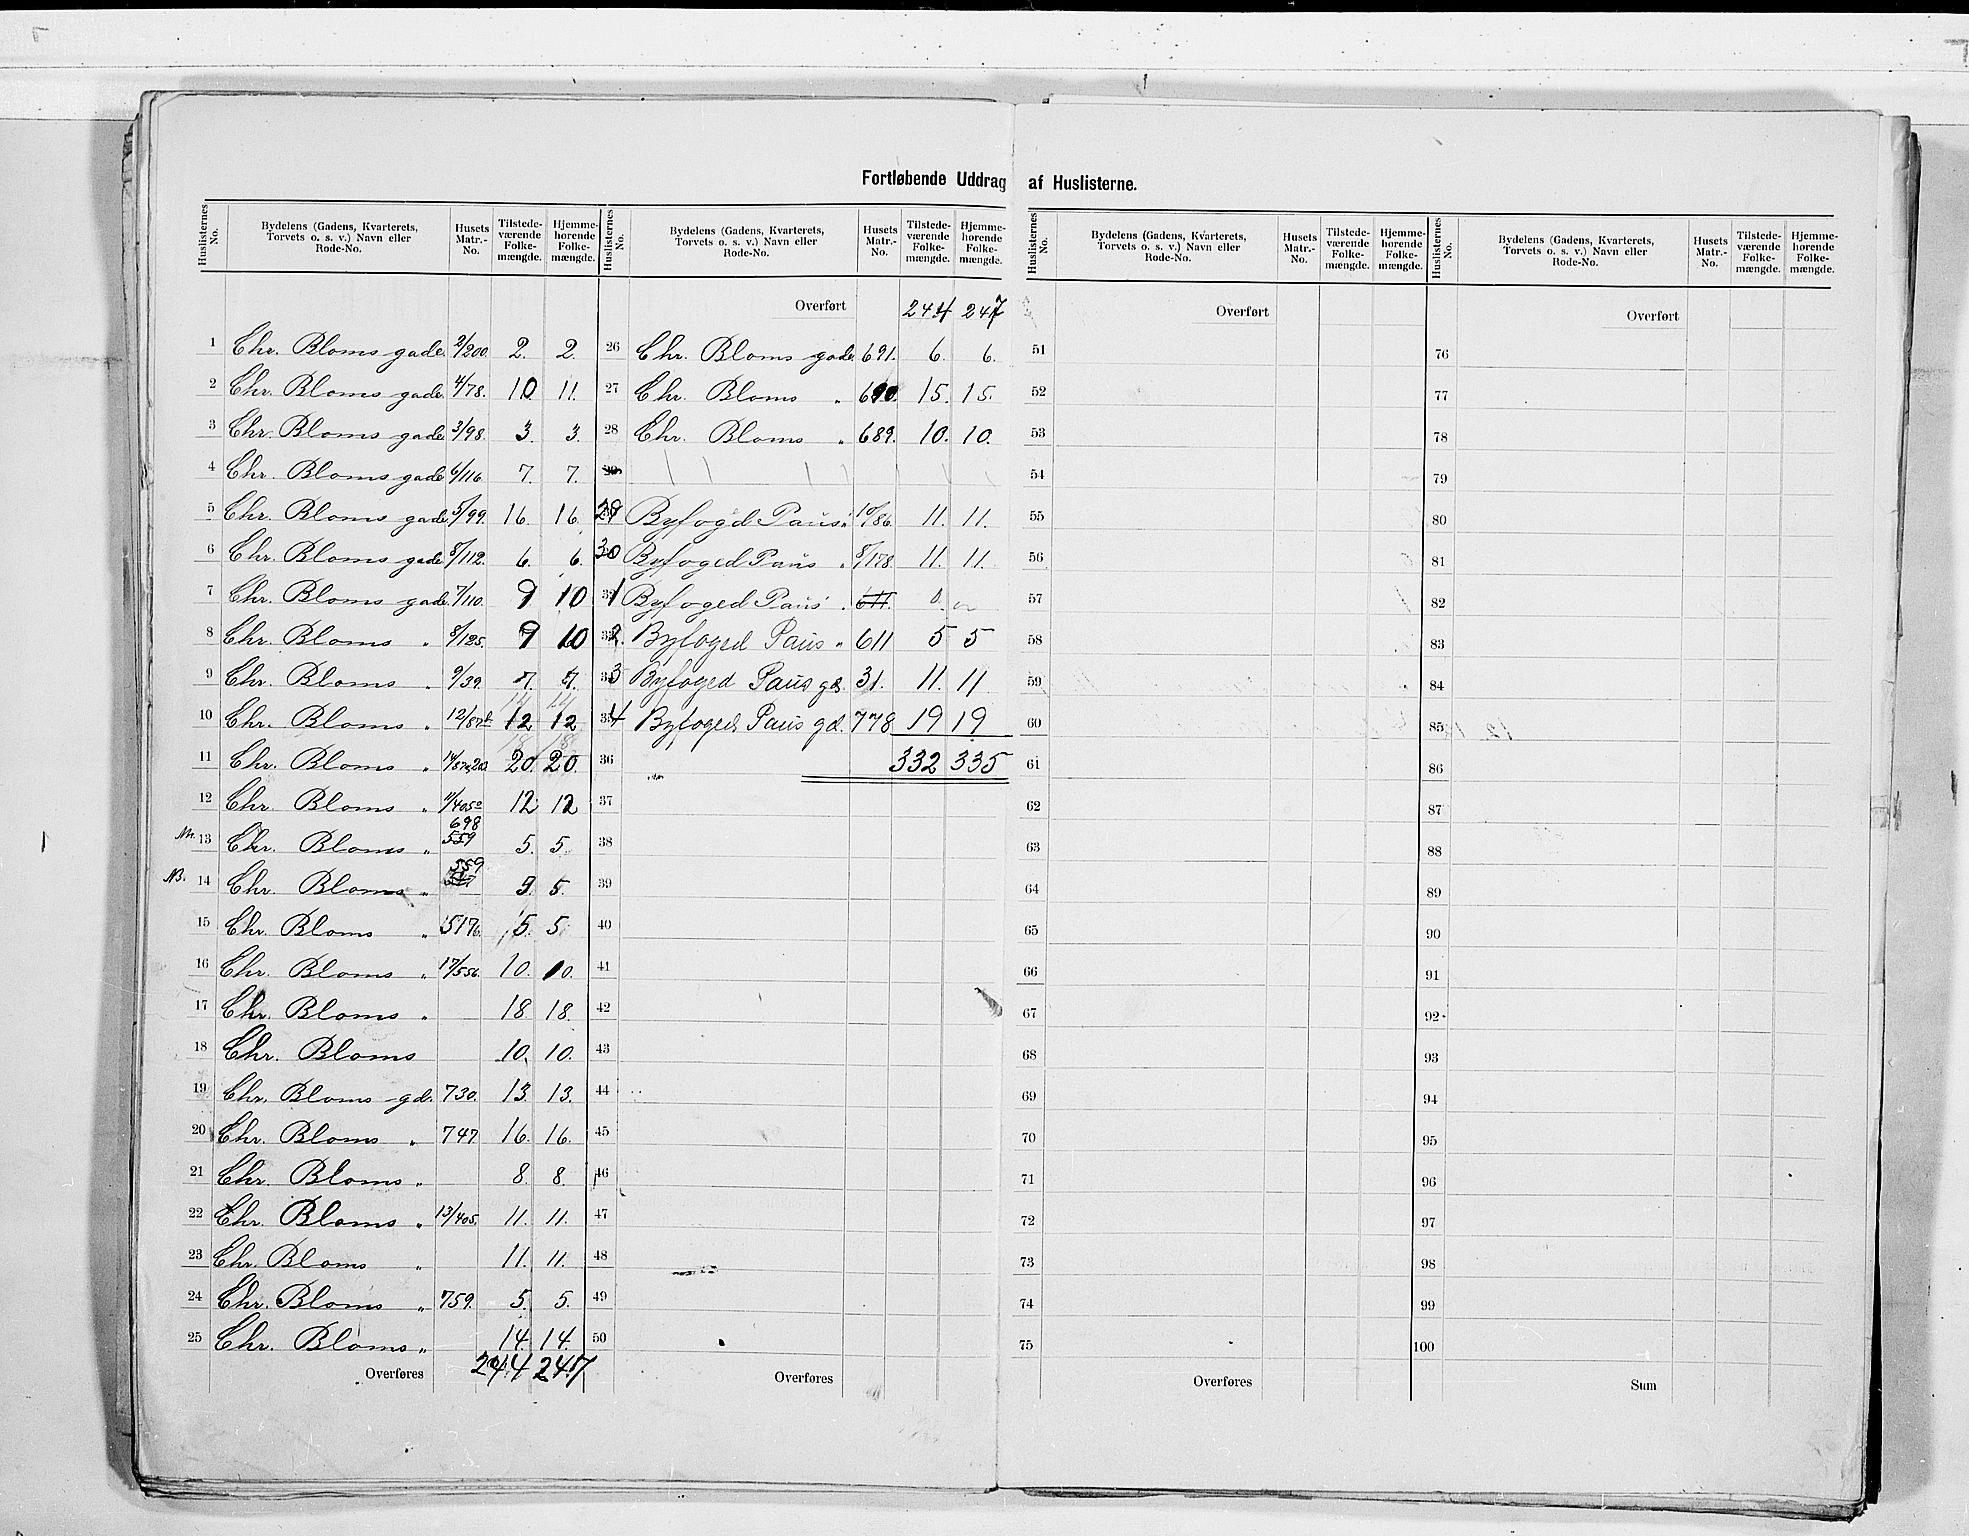 Fortløbende Uddrag af Huslisterne.
Huslisternes No. Bydelens (Gadens, Kvarterets, Torvets o. s. v.) Navn eller Rode-No. Husets Matr.-No. Tilstedeværende Folkemængde. Hjemmehørende Folkemængde.
1 Chr. Bloms gade 2/200. 2. 2.
2 Chr. Bloms gade. 4/78. 10 11.
3 Chr. Bloms gade 3/98. 3. 3.
4 Chr. Bloms gade 6/116 7. 7.
5 Chr. Bloms gade 5/99. 16. 16.
6 Chr. Bloms gade 8/112. 6. 6.
7 Chr. Bloms gade 7/110. 9 10
8 Chr. Bloms " 8/125. 9 10
9 Chr. Bloms " 9/39. 7. 7.
10 Chr. Bloms " 12/87b 12 12
11 Chr. Bloms " 20. 20.
12 Chr. Bloms " 12. 12
698
13 Chr. Bloms " 559 5. 5.
559
NB. 14 Chr. Bloms " 5.
15 Chr. Bloms " 5. 5.
16 Chr. Bloms " 17/556. 10. 10.
17 Chr. Bloms " 18 18.
18 Chr. Bloms 10. 10.
19 Chr. Bloms gd. 730. 13. 13.
20 Chr. Bloms " 747 16. 16.
21 Chr. Bloms " 8. 8.
22 Chr. Bloms " 13/405. 11. 11.
23 Chr. Bloms " 11. 11.
24 Chr. Bloms " 759. 5. 5.
25 Chr. Bloms " 14. 14.
Overføres 244 247
Huslisternes No. Bydelens (Gadens, Kvarterets, Torvets o. s. v.) Navn eller Rode-No. Husets Matr.-No. Tilstedeværende Folkemængde. Hjemmehørende Folkemængde.
Overført 244 247
26 Chr. Bloms gade. 691. 6. 6.
27 Chr. Bloms " 690. 15. 15.
28 Chr. Bloms " 689. 10. 10.
29
29 Byfogd Paus " 10/86 11. 11.
30 Byfoged Paus " 8/178. 11. 11.
31 Byfoged Paus " 611.
32 Byfoged Paus " 611 5 5
33 Byfoged Paus gd. 31. 11. 11
34 Byfoged Paus gd. 778 19 19
36 332 335
37
38
39
40
41
42
43
44
45
46
47
48
49
50
Overføres
Huslisternes No. Bydelens (Gadens, Kvarterets, Torvets o. s. v.) Navn eller Rode-No. Husets Matr.-No. Tilstedeværende Folkemængde. Hjemmehørende Folkemængde.
Overført
51
52
53
54
55
56
57
58
59
60
61
62
63
64
65
66
67
68
69
70
71
72
73
74
75
Overføres
Huslisternes No. Bydelens (Gadens, Kvarterets, Torvets o. s. v.) Navn eller Rode-No. Husets Matr.-No. Tilstedeværende Folkemængde. Hjemmehørende Folkemængde.
Overført
76
77
78
79
80
81
82
83
84
85
86
87
88
89
90
91
92
93
94
95
96
97
98
99
100
Sum